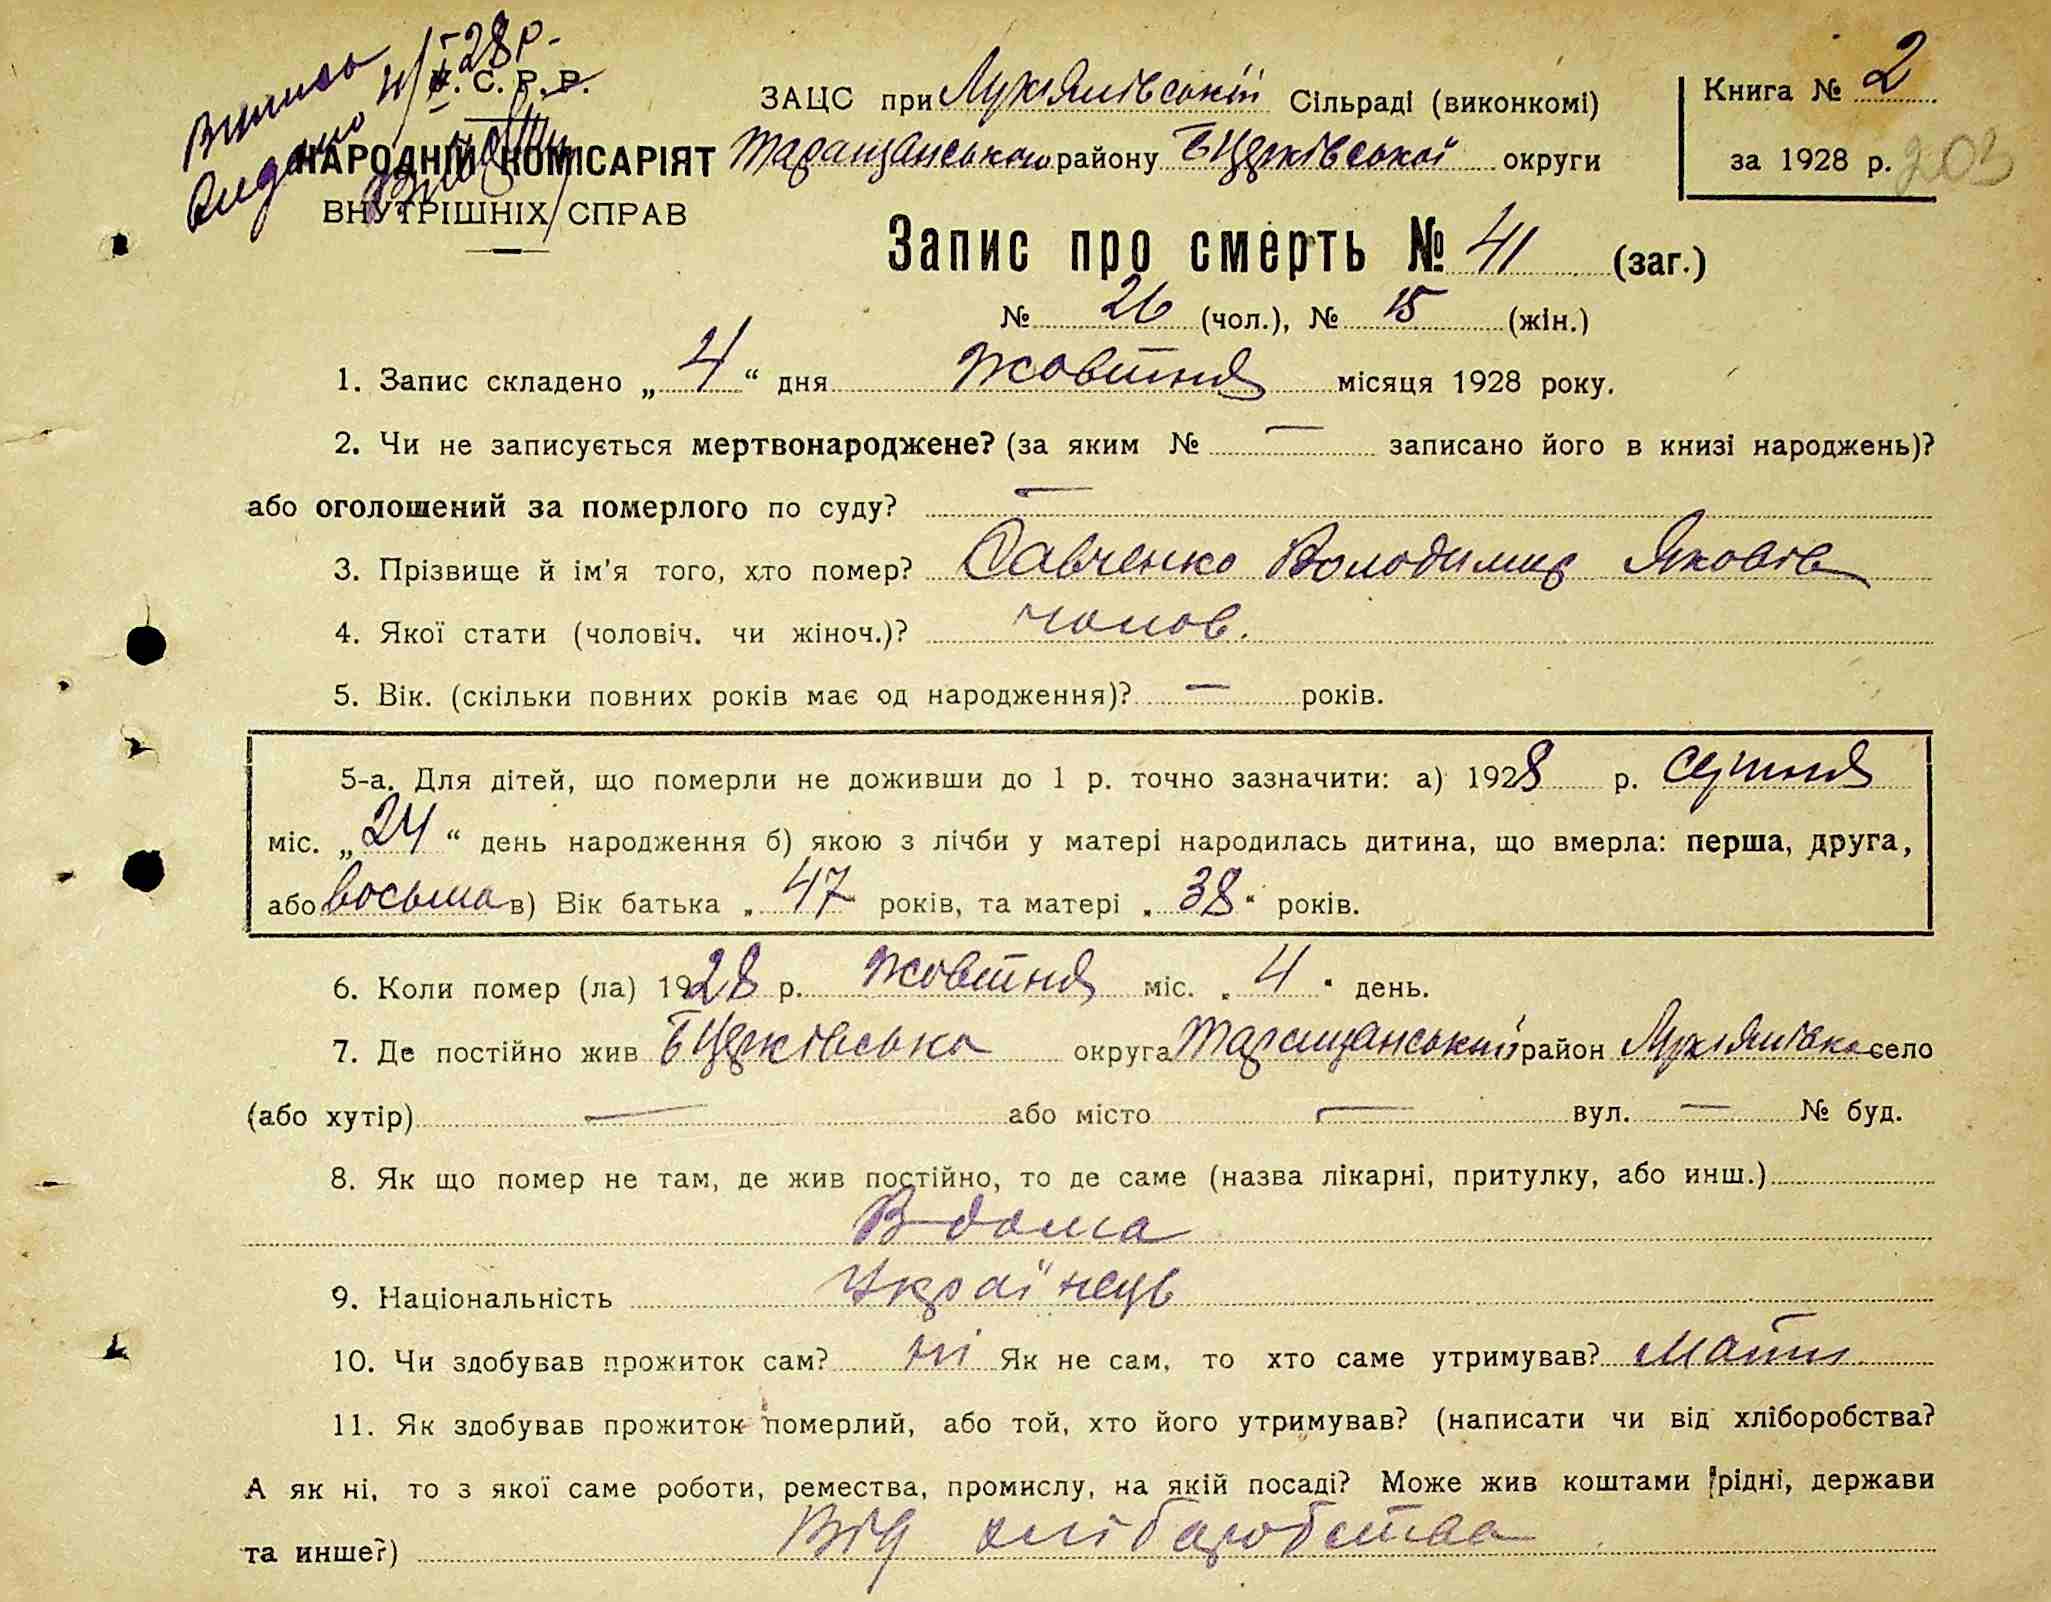 Випись
видано 4/X 28 р.
У. С. Р. Р.
НАРОДНІЙ КОМІСАРІЯТ
ВНУТРІШНІХ СПРАВ
ЗАЦС при Лукіянівській Сільраді (виконкомі)
Таращанського району БЦерківської округи
Книга № 2
за 1928 р. 203
Запис про смерть № 41 (заг.)
№ 26 (чол.), № 15 (жін.)
1. Запис складено „ 4 “ дня Жовтня місяця 1928 року.
2. Чи не записується мертвонароджене? (за яким № — записано його в книзі народжень)?
або оголошений за померлого по суду? —
3. Прізвище й ім'я того, хто помер? Савченко Володимир Яковів
4. Якої стати (чоловіч. чи жіноч.)? чолов.
5. Вік. (скільки повних років має од народження)? — років.
5-а. Для дітей, що померли не доживши до 1 р. точно зазначити: а) 1928 р. серпня
міс. „ 24 “ день народження б) якою з лічби у матері народилась дитина, що вмерла: перша, друга,
або восьма в) Вік батька „ 47 “ років, та матері „ 38 “ років.
6. Коли помер (ла) 1928 р. Жовтня міс. „ 4 “ день.
7. Де постійно жив БЦерківська округа Таращанський район Лукіянівка село
(або хутір) — або місто — вул. — № буд.
8. Як що помер не там, де жив постійно, то де саме (назва лікарні, притулку, або инш.)
В дома
9. Національність Українець
10. Чи здобував прожиток сам? ні Як не сам, то хто саме утримував? Мати
11. Як здобував прожиток померлий, або той, хто його утримував? (написати чи від хліборобства?
А як ні, то з якої саме роботи, ремества, промислу, на якій посаді? Може жив коштами рідні, держави
та инше?) Від хліборобства